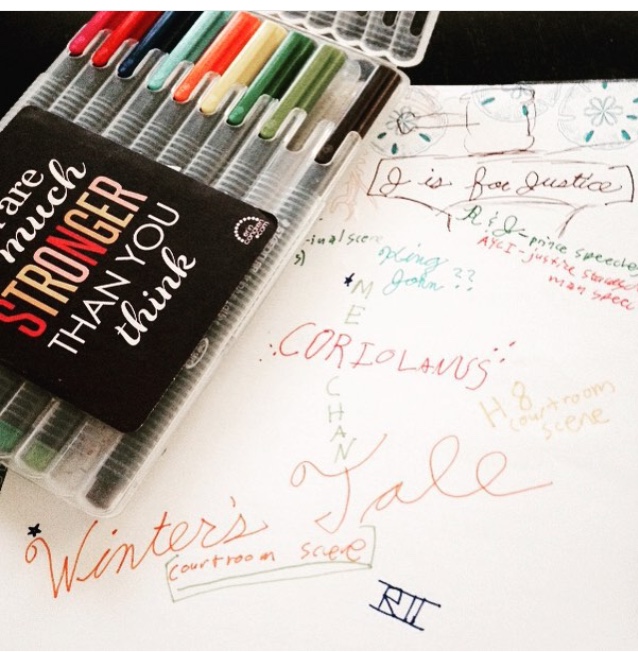 are
much
STRONGER
THAN YOU
think
J is for Justice
R & J - prince speeches
AYLI - justice
man speec
-inal scene
s)
John ??
MERCHAN
CORIOLANUS
H 8
courtroom
scene
Winter's Tale
courtroom scene
RII